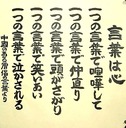 言葉は心
一つの言葉で喧嘩して
一つの言葉で仲直り
一つの言葉で頭がさがり
一つの言葉で笑いあい
一つの言葉で泣かされる